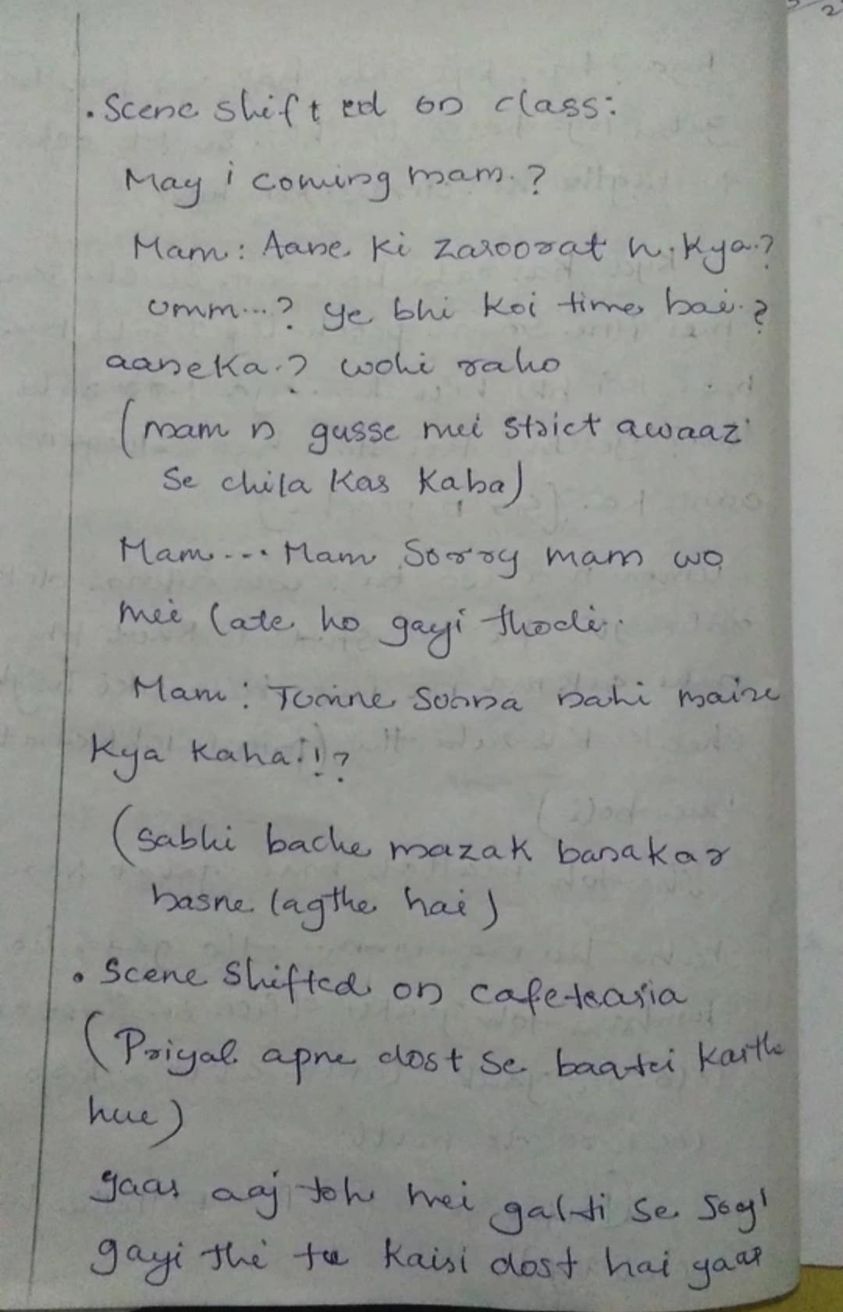 . Scene shifted on class:
May i coming mam.?
Mam: Aane ki zaroorat h. kya.?
umm...? ye bhi koi time hai.?
aaneka.? wohi raho
(mam n gusse mei strict awaaz
se chila kar kaha)
Mam... Mam sorry mam wo
mei late ho gayi thodi..
Mam: Tumne sunna nahi maine
kya kaha.!!?
(sabhi bache mazak banakar
hasne lagthe hai)
. Scene shifted on cafetearia
(Priyal apne dost se baatei karthe
hue)
yaar aaj toh mei galti se
gayi thi tu kaisi dost hai yaar